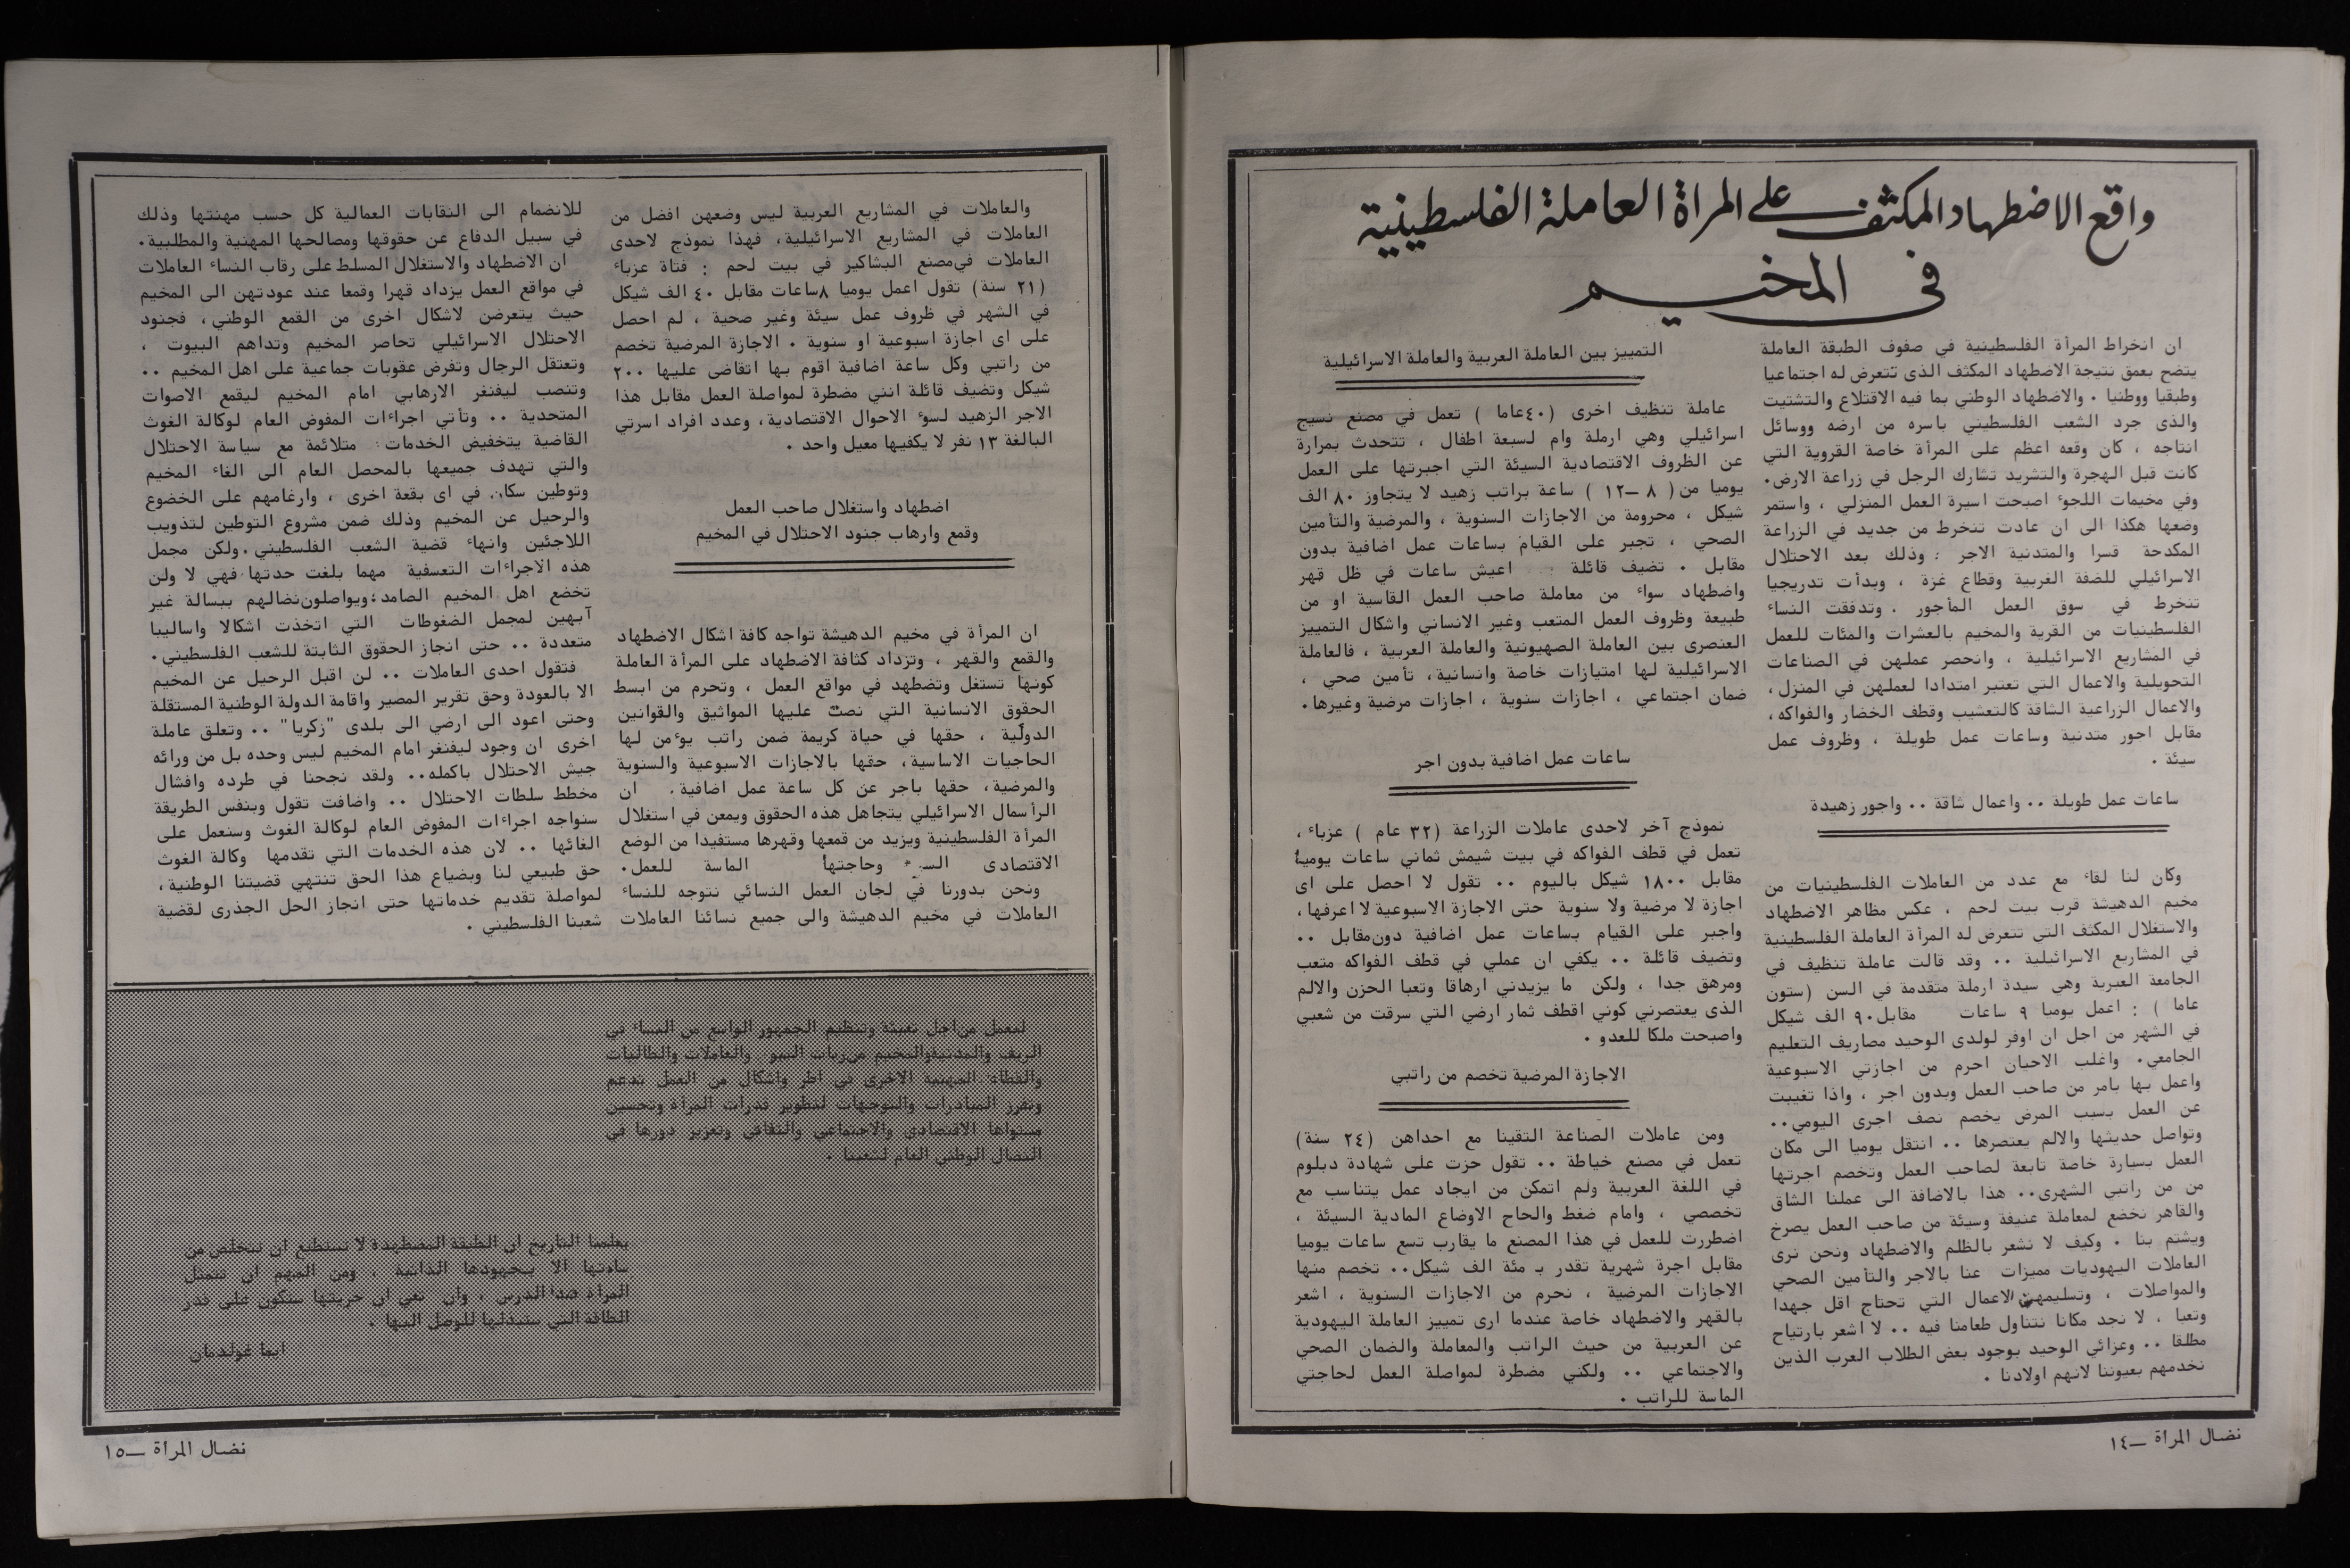 واقع الاضطهاد المكثف على المرأة العاملة الفلسطينية
في المخيم
ان انخراط المرأة الفلسطينية في صفوف الطبقة العاملة
يتضح بعمق نتيجة الاضطهاد المكثف الذى تتعرض له اجتماعيا
وطبقيا ووطنيا . والاضطهاد الوطني بما فيه الاقتلاع والتشتيت
والذى جرد الشعب الفلسطيني باسره من ارضه ووسائل
انتاجه ، كان وقعه اعظم على المرأة خاصة القروية التي
كانت قبل الهجرة والتشريد تشارك الرجل في زراعة الارض.
وفي مخيمات اللجوء اصبحت اسيرة العمل المنزلي ، واستمر
وضعها هكذا الى ان عادت تنخرط من جديد في الزراعة
المكدحة قسرا والمتدنية الاجر ؛ وذلك بعد الاحتلال
الاسرائيلي للضفة الغربية وقطاع غزة ، وبدأت تدريجيا
تنخرط في سوق العمل المأجور . وتدفقت النساء
الفلسطينيات من القرية والمخيم بالعشرات والمئات للعمل
في المشاريع الاسرائيلية ، وانحصر عملهن في الصناعات
التحويلية والاعمال التي تعتبر امتدادا لعملهن في المنزل،
والاعمال الزراعية الشاقة كالتعشيب وقطف الخضار والفواكه،
مقابل اجور متدنية وساعات عمل طويلة ، وظروف عمل
سيئة .
ساعات عمل طويلة .. واعمال شاقة .. واجور زهيدة
وكان لنا لقاء مع عدد من العاملات الفلسطينيات من
مخيم الدهيشة قرب بيت لحم ، عكس مظاهر الاضطهاد
والاستغلال المكثف التي تتعرض له المرأة العاملة الفلسطينية
في المشاريع الاسرائيلية .. وقد قالت عاملة تنظيف في
الجامعة العبرية وهي سيدة ارملة متقدمة في السن (ستون
عاما ) : اعمل يوميا ٩ ساعات مقابل ٩٠ الف شيكل
في الشهر من اجل ان اوفر لولدى الوحيد مصاريف التعليم
الجامعي. واغلب الاحيان احرم من اجازتي الاسبوعية
واعمل بها بامر من صاحب العمل وبدون اجر ، واذا تغيبت
عن العمل بسبب المرض يخصم نصف اجرى اليومي..
وتواصل حديثها والالم يعتصرها .. انتقل يوميا الى مكان
العمل بسيارة خاصة تابعة لصاحب العمل وتخصم اجرتها
من من راتبي الشهرى.. هذا بالاضافة الى عملنا الشاق
والقاهر نخضع لمعاملة عنيفة وسيئة من صاحب العمل يصرخ
ويشتم بنا . وكيف لا نشعر بالظلم والاضطهاد ونحن نرى
العاملات اليهوديات مميزات عنا بالاجر والتأمين الصحي
والمواصلات ، وتسليمهن الاعمال التي تحتاج اقل جهدا
وتعبا ، لا نجد مكانا نتناول طعامنا فيه .. لا اشعر بارتياح
مطلقا .. وعزائي الوحيد بوجود بعض الطلاب العرب الذين
نخدمهم بعيوننا لانهم اولادنا .
التمييز بين العاملة العربية والعاملة الاسرائيلية
عاملة تنظيف اخرى (٤٠عاما ) تعمل في مصنع نسيج
اسرائيلي وهي ارملة وام لسبعة اطفال ، تتحدث بمرارة
عن الظروف الاقتصادية السيئة التي اجبرتها على العمل
يوميا من ( ٨ –١٢ ) ساعة براتب زهيد لا يتجاوز ٨٠ الف
شيكل ، محرومة من الاجازات السنوية ، والمرضية والتأمين
الصحي ، تجبر على القيام بساعات عمل اضافية بدون
مقابل . تضيف قائلة اعيش ساعات في ظل قهر
واضطهاد سواء من معاملة صاحب العمل القاسية او من
طبيعة وظروف العمل المتعب وغير الانساني واشكال التمييز
العنصرى بين العاملة الصهيونية والعاملة العربية ، فالعاملة
الاسرائيلية لها امتيازات خاصة وانسانية، تأمين صحي ،
ضمان اجتماعي ، اجازات سنوية ، اجازات مرضية وغيرها.
ساعات عمل اضافية بدون اجر
نموذج آخر لاحدى عاملات الزراعة (٣٢ عام ) عزباء ،
تعمل في قطف الفواكه في بيت شيمش ثماني ساعات يوميا
مقابل ١٨٠٠ شيكل باليوم .. تقول لا احصل على اى
اجازة لا مرضية ولا سنوية حتى الاجازة الاسبوعية لا اعرفها،
واجبر على القيام بساعات عمل اضافية دون مقابل ..
وتضيف قائلة .. يكفي ان عملي في قطف الفواكه متعب
ومرهق جدا ، ولكن ما يزيدني ارهاقا وتعبا الحزن والالم
الذى يعتصرني كوني اقطف ثمار ارضي التي سرقت من شعبي
واصبحت ملكا للعدو .
الاجازة المرضية تخصم من راتبي
ومن عاملات الصناعة التقينا مع احداهن (٢٤ سنة)
تعمل في مصنع خياطة .. تقول حزت على شهادة دبلوم
في اللغة العربية ولم اتمكن من ايجاد عمل يتناسب مع
تخصصي ، وامام ضغط والحاح الاوضاع المادية السيئة ،
اضطررت للعمل في هذا المصنع ما يقارب تسع ساعات يوميا
مقابل اجرة شهرية تقدر بـ مئة الف شيكل.. تخصم منها
الاجازات المرضية ، نحرم من الاجازات السنوية ، اشعر
بالقهر والاضطهاد خاصة عندما ارى تمييز العاملة اليهودية
عن العربية من حيث الراتب والمعاملة والضمان الصحي
والاجتماعي .. ولكني مضطرة لمواصلة العمل لحاجتي
الماسة للراتب .
نضال المرأة –١٤
والعاملات في المشاريع العربية ليس وضعهن افضل من
العاملات في المشاريع الاسرائيلية، فهذا نموذج لاحدى
العاملات في مصنع البشاكير في بيت لحم : فتاة عزباء
(٢١ سنة) تقول اعمل يوميا ٨ساعات مقابل ٤٠ الف شيكل
في الشهر في ظروف عمل سيئة وغير صحية ، لم احصل
على اى اجازة اسبوعية او سنوية . الاجازة المرضية تخصم
من راتبي وكل ساعة اضافية اقوم بها اتقاضى عليها ٢٠٠
شيكل وتضيف قائلة انني مضطرة لمواصلة العمل مقابل هذا
الاجر الزهيد لسوء الاحوال الاقتصادية، وعدد افراد اسرتي
البالغة ١٣ نفر لا يكفيها معيل واحد .
اضطهاد واستغلال صاحب العمل
وقمع وارهاب جنود الاحتلال في المخيم
ان المرأة في مخيم الدهيشة تواجه كافة اشكال الاضطهاد
والقمع والقهر ، وتزداد كثافة الاضطهاد على المرأة العاملة
كونها تستغل وتضطهد في مواقع العمل ، وتحرم من ابسط
الحقوق الانسانية التي نصت عليها المواثيق والقوانين
الدولية ، حقها في حياة كريمة ضمن راتب يوءمن لها
الحاجيات الاساسية، حقها بالاجازات الاسبوعية والسنوية
والمرضية، حقها باجر عن كل ساعة عمل اضافية. ان
الرأسمال الاسرائيلي يتجاهل هذه الحقوق ويمعن في استغلال
المرأة الفلسطينية ويزيد من قمعها وقهرها مستفيدا من الوضع
الاقتصادى السيء وحاجتها الماسة للعمل.
ونحن بدورنا في لجان العمل النسائي نتوجه للنساء
العاملات في مخيم الدهيشة والى جميع نسائنا العاملات
للانضمام الى النقابات العمالية كل حسب مهنتها وذلك
في سبيل الدفاع عن حقوقها ومصالحها المهنية والمطلبية.
ان الاضطهاد والاستغلال المسلط على رقاب النساء العاملات
في مواقع العمل يزداد قهرا وقمعا عند عودتهن الى المخيم
حيث يتعرضن لاشكال اخرى من القمع الوطني، فجنود
الاحتلال الاسرائيلي تحاصر المخيم وتداهم البيوت ،
وتعتقل الرجال وتفرض عقوبات جماعية على اهل المخيم ..
وتنصب ليفنغر الارهابي امام المخيم ليقمع الاصوات
المتحدية .. وتأتي اجراءات المفوض العام لوكالة الغوث
القاضية بتخفيض الخدمات؛ متلائمة مع سياسة الاحتلال
والتي تهدف جميعها بالمحصل العام الى الغاء المخيم
وتوطين سكانه في اى بقعة اخرى ، وارغامهم على الخضوع
والرحيل عن المخيم وذلك ضمن مشروع التوطين لتذويب
اللاجئين وانهاء قضية الشعب الفلسطيني.ولكن مجمل
هذه الاجراءات التعسفية مهما بلغت حدتها فهي لا ولن
تخضع اهل المخيم الصامد؛ويواصلون نضالهم ببسالة غير
آبهين لمجمل الضغوطات التي اتخذت اشكالا واساليبا
متعددة .. حتى انجاز الحقوق الثابتة للشعب الفلسطيني.
فتقول احدى العاملات .. لن اقبل الرحيل عن المخيم
الا بالعودة وحق تقرير المصير واقامة الدولة الوطنية المستقلة
وحتى اعود الى ارضي الى بلدى "زكريا" .. وتعلق عاملة
اخرى ان وجود ليفنغر امام المخيم ليس وحده بل من ورائه
جيش الاحتلال باكمله.. ولقد نجحنا في طرده وافشال
مخطط سلطات الاحتلال .. واضافت تقول وبنفس الطريقة
سنواجه اجراءات المفوض العام لوكالة الغوث وسنعمل على
الغائها .. لان هذه الخدمات التي تقدمها وكالة الغوث
حق طبيعي لنا وبضياع هذا الحق تنتهي قضيتنا الوطنية،
لمواصلة تقديم خدماتها حتى انجاز الحل الجذرى لقضية
شعبنا الفلسطيني .
لنعمل من اجل تعبئة وتنظيم الجمهور الواسع من النساء في
الريف والمدينة والمخيم من ربات البيوت والعاملات والطالبات
والقطاعات المهنية الاخرى في اطر واشكال من العمل تدعم
وتفرز المبادرات والتوجهات لتطوير قدرات المرأة وتحسين
مستواها الاقتصادى والاجتماعي والثقافي وتعزيز دورها في
النضال الوطني العام لشعبنا .
يعلمنا التاريخ ان الطبقة المضطهدة لا تستطيع ان تتخلص من
سادتها الا بجهودها الذاتية ومن المهم ان تتمثل
المرأة هذا الدرس ، وان تعي ان حريتها ستكون على قدر
الطاقة التي ستبذلها للوصل اليها .
ايما غولدمان
نضال المرأة –١٥